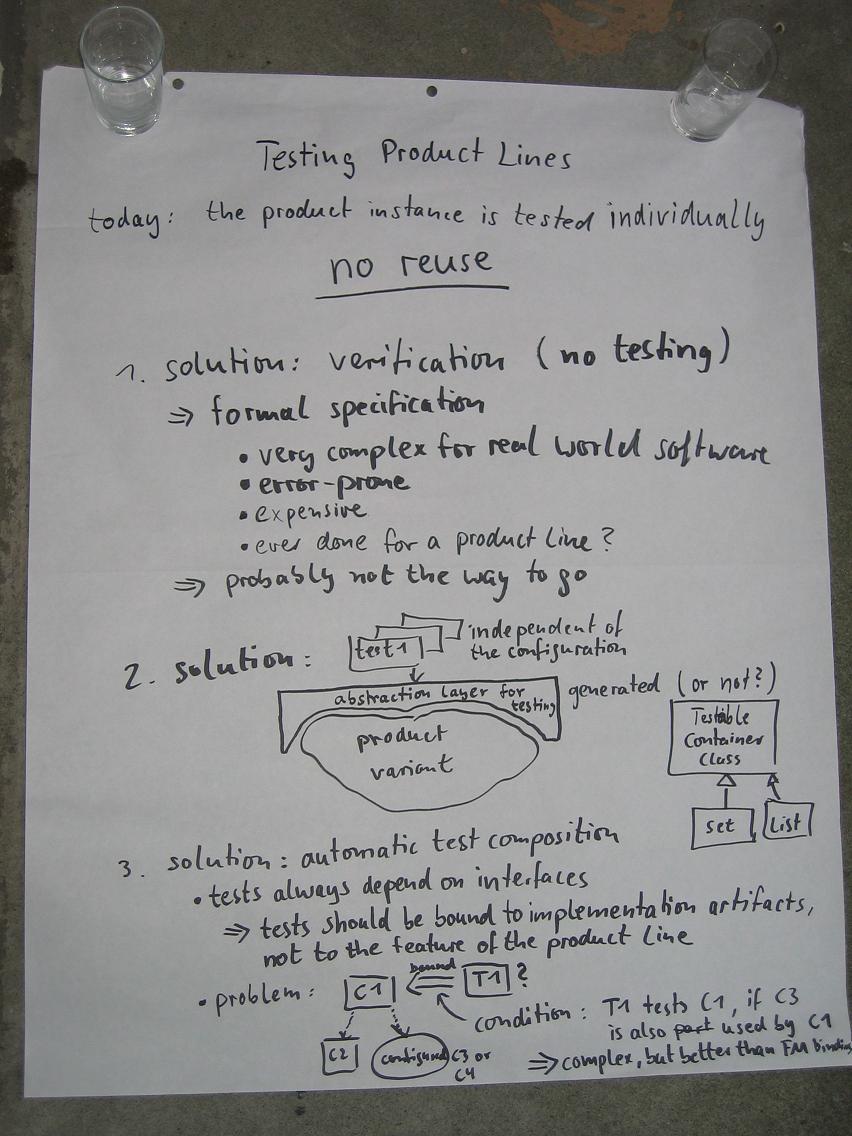 Testing Product Lines
today: the product instance is tested individually
no reuse
1. solution: verification (no testing)
⇒ formal specification
• very complex for real world software
• error-prone
• expensive
• ever done for a product line?
⇒ probably not the way to go
2. solution:
test1
independent of
the configuration
abstraction layer for
testing
generated (or not?)
product
variant
Testable
Container
Class
set
List
3. solution: automatic test composition
• tests always depend on interfaces
⇒ tests should be bound to implementation artifacts,
not to the feature of the product line
• problem:
C1
bound
T1 ?
condition: T1 tests C1, if C3
is also part used by C1
C2
configured C3 or
C4
⇒ complex, but better than FM binding